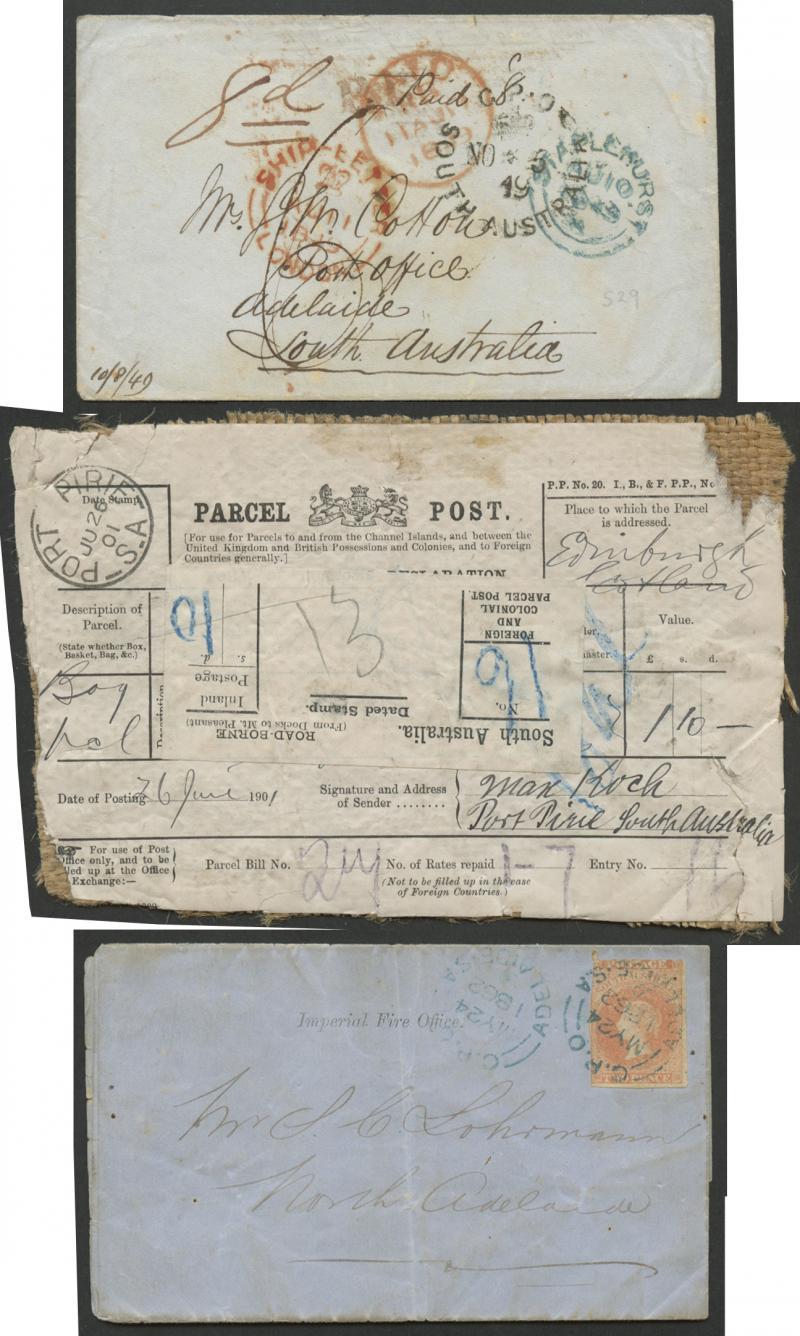 8d
Paid 8
PAID
11 AU 11
SHIP LETTER
LONDON
G.P.O
NO
19
SOUTH AUSTRALIA
STAPLEHURST
AU 10
Mr. J. W. Cotton
Post Office
Adelaide
South Australia
529
10/8/49
Date Stamp
PORT PIRIE
JU 26
01
S.A
PARCEL POST.
[For use for Parcels to and from the Channel Islands, and between the
United Kingdom and British Possessions and Colonies, and to Foreign
Countries generally.]
P.P. No. 20. I., B., & F. P.P., No
Place to which the Parcel
is addressed.
Edinburgh
Scotland
Description of
Parcel.
(State whether Box,
Basket, Bag, &c.)
Bag
Description
South Australia.
ROAD-BORNE
(From Docks to Mt. Pleasant)
Dated Stamp.
No.
91
FOREIGN
AND
COLONIAL
PARCEL POST.
Inland
Postage
s. d.
13
Value.
£ s. d.
1 10 –
Date of Posting 26 June 1901
Signature and Address
of Sender ........
Max Koch
Port Pirie South Australia
For use of Post
Office only, and to be
filled up at the Office
of Exchange:—
Parcel Bill No. 24
No. of Rates repaid 1-7
Entry No.
(Not to be filled up in the case
of Foreign Countries.)
Imperial Fire Office.
G.P.O
ADELAIDE S.A
MY 24
1862
G.P.O
ADELAIDE S.A
MY 24
1862
POSTAGE
TWO PENCE
Mr J. C. Lohrmann
North Adelaide